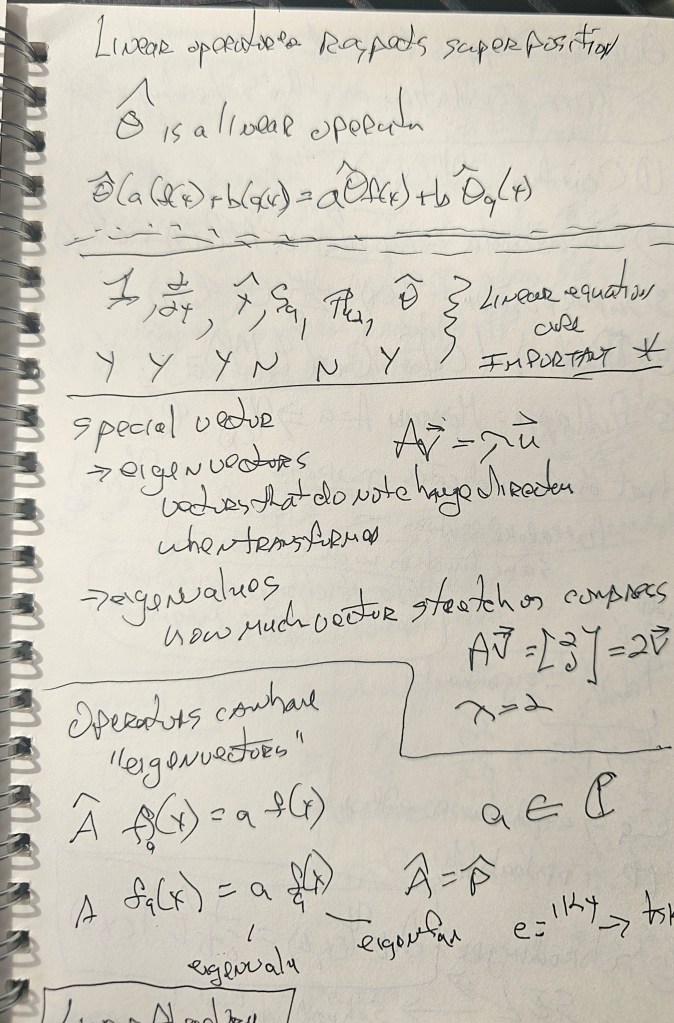 Linear operators Respects superposition
Ô is a linear operator
Ô(a(f(x)+b(g(x)) = aÔf(x)+b Ôg(x)
1, ∂/∂x, x̂, Sq, Ô } Linear equation
are
Y Y Y N N Y IMPORTANT *
special vector
Av⃗ = λu⃗
→ eigenvectors
vectors that do not change direction
when transformed
→ eigenvalues
how much vector stretch or compress
Av⃗ = [2 0] = 2v⃗
λ=2
Operators can have
"eigenvectors"
Â fa(x) = a f(x) a ∈ ℂ
A fa(x) = a fa(x) Â = p̂
eigenvalu eigenfun